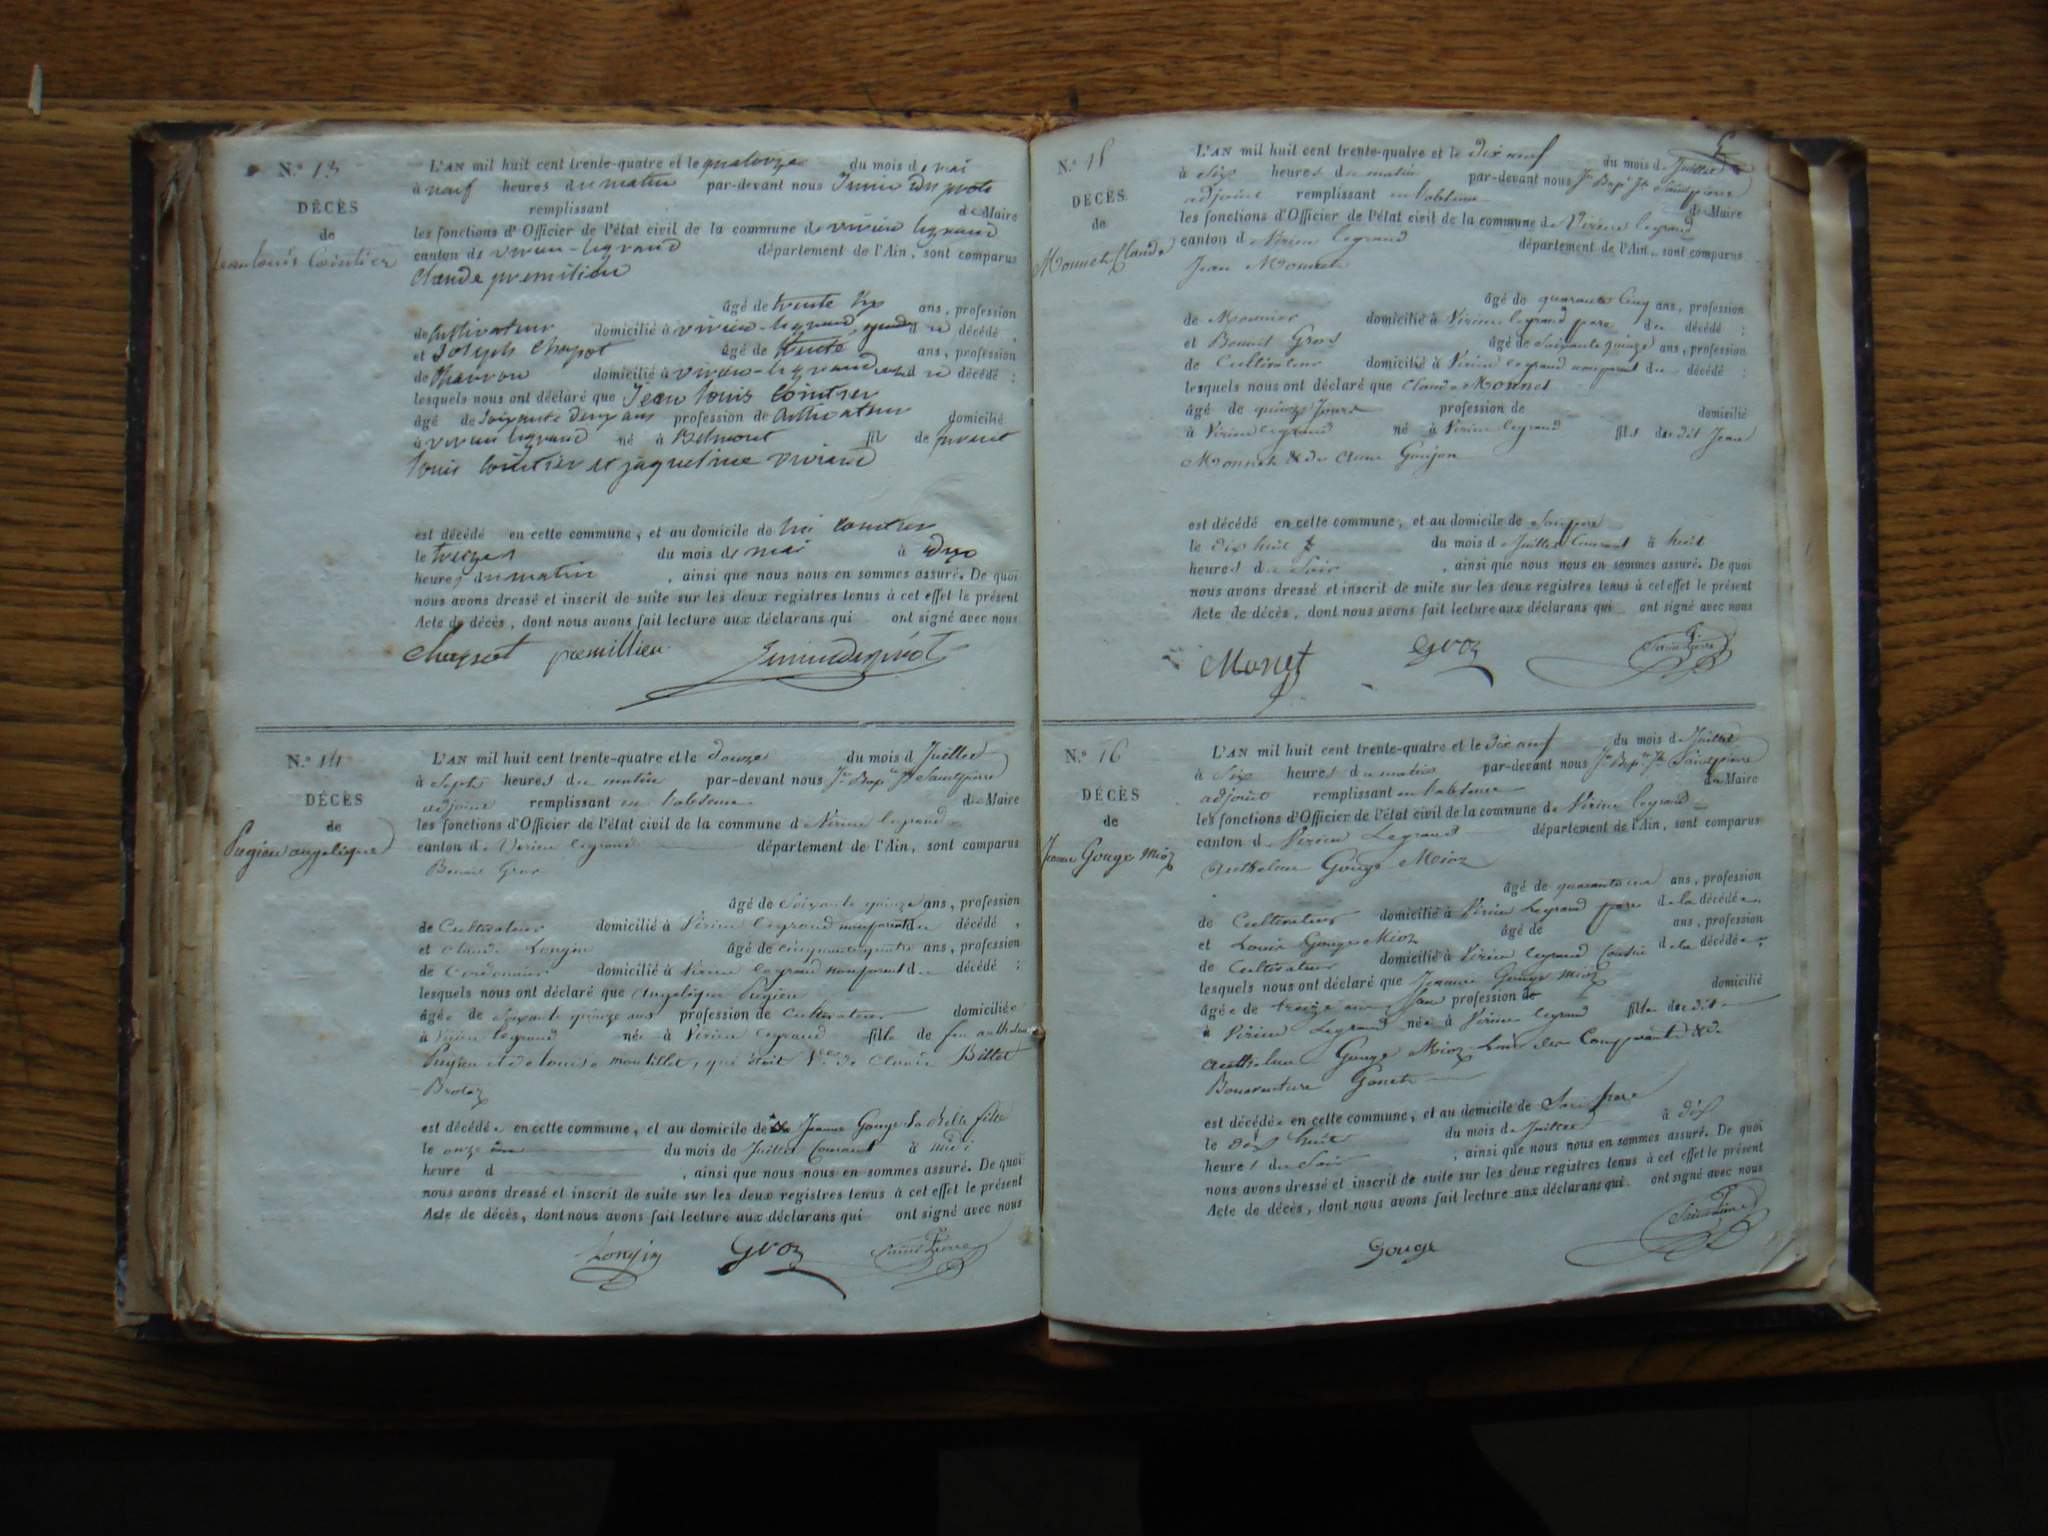 N.º 13
DÉCÈS
de
Jean Louis Cointier
L'AN mil huit cent trente-quatre et le quatorze du mois de mai
à neuf heures du matin par-devant nous
remplissant de Maire
les fonctions d'Officier de l'état civil de la commune de virieu legrand
canton de virieu-legrand département de l'Ain, sont comparus
Claude premilieu
âgé de trente six ans, profession
de Cultivateur domicilié à virieu-legrand, du décédé,
et Joseph Chapot âgé de trente ans, profession
de Charron domicilié à virieu-legrand du décédé ;
lesquels nous ont déclaré que Jean louis Cointier
âgé de soixante deux ans profession de Cultivateur domicilié
à virieu legrand né à Belmont fils de
louis Cointier et jaqueline vivian
est décédé en cette commune, et au domicile de Cointier
le treize du mois de mai à
heures du matin, ainsi que nous nous en sommes assuré. De quoi
nous avons dressé et inscrit de suite sur les deux registres tenus à cet effet le présent
Acte de décès, dont nous avons fait lecture aux déclarans qui ont signé avec nous
Chapot premillieu
N.º 14
DÉCÈS
de
Pugieu angelique
L'AN mil huit cent trente-quatre et le douze du mois de Juillet
à Sept heures du matin par-devant nous Jn Bapte Jh Saintpierre
adjoint remplissant en l'absence du Maire
les fonctions d'Officier de l'état civil de la commune de Virieu legrand
canton de Virieu legrand département de l'Ain, sont comparus
Benoit Gros
âgé de Soixante quinze ans, profession
de Cultivateur domicilié à Virieu legrand nonparent du décédé,
et Claude Longin âgé de cinquante quatre ans, profession
de Cordonnier domicilié à Virieu legrand nonparent du décédé ;
lesquels nous ont déclaré que Angelique Pugieu
âgée de Soixante quinze ans profession de Cultivateur domiciliée
à Virieu legrand née à Virieu legrand fille de feu anthelme
Pugieu et de louise montillet, qui était Ve de Claude Billet
Brotaz
est décédée en cette commune, et au domicile de Jeanne Gouge Sa Belle fille
le onze du mois de Juillet Courant à midi
heure d , ainsi que nous nous en sommes assuré. De quoi
nous avons dressé et inscrit de suite sur les deux registres tenus à cet effet le présent
Acte de décès, dont nous avons fait lecture aux déclarans qui ont signé avec nous
Longin Groz Saintpierre
5
N.º 15
DÉCÈS
de
Monnet Claude
L'AN mil huit cent trente-quatre et le Dix neuf du mois de Juillet
à Six heures du matin par-devant nous Jn Bapt Jh Saintpierre
adjoint remplissant en l'absence du Maire
les fonctions d'Officier de l'état civil de la commune de Virieu legrand
canton de Virieu legrand département de l'Ain, sont comparus
Jean Monnet
âgé de quarante Cinq ans, profession
de Meunier domicilié à Virieu legrand pere du décédé ;
et Benoit Gros âgé de Soixante quinze ans, profession
de Cultivateur domicilié à Virieu legrand nonparent du décédé ;
lesquels nous ont déclaré que Claude Monnet
âgé de quinze Jours profession de domicilié
à Virieu legrand né à Virieu legrand fils du dit Jean
Monnet & de Goujon
est décédé en cette commune, et au domicile de Son pere
le dix huit du mois de Juillet Courant à huit
heures du Soir, ainsi que nous nous en sommes assuré. De quoi
nous avons dressé et inscrit de suite sur les deux registres tenus à cet effet le présent
Acte de décès, dont nous avons fait lecture aux déclarans qui ont signé avec nous
Monet Groz Saintpierre
N.º 16
DÉCÈS
de
Jeanne Gouge Mioz
L'AN mil huit cent trente-quatre et le Dix neuf du mois de Juillet
à Six heures du matin par-devant nous Jn Bapt Jh Saintpierre
adjoint remplissant en l'absence du Maire
les fonctions d'Officier de l'état civil de la commune de Virieu legrand
canton de Virieu Legrand département de l'Ain, sont comparus
Anthelme Gouge Mioz
âgé de quarante ans, profession
de Cultivateur domicilié à Virieu Legrand pere de la décédée,
et Louis Gouge Mioz âgé de ans, profession
de Cultivateur domicilié à Virieu legrand Cousin de la décédée ;
lesquels nous ont déclaré que Jeanne Gouge Mioz
âgée de treize ans profession de domicilié
à Virieu Legrand née à Virieu legrand fille du dit
Anthelme Gouge Mioz L'un des Comparants & de
Bonaventure Gonet
est décédée en cette commune, et au domicile de Son pere
le Dix huit du mois de Juillet à dix
heures du Soir, ainsi que nous nous en sommes assuré. De quoi
nous avons dressé et inscrit de suite sur les deux registres tenus à cet effet le présent
Acte de décès, dont nous avons fait lecture aux déclarans qui ont signé avec nous
Gouge Saintpierre